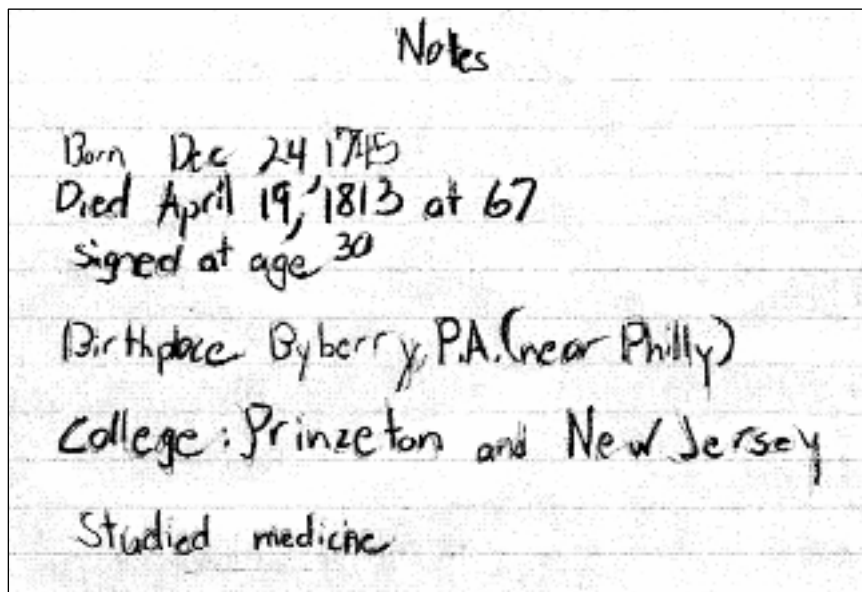 Notes
Born Dec 24, 1745
Died April 19, 1813 at 67
signed at age 30
Birthplace Byberry, P.A. (near Philly)
College: Prinzeton and New Jersey
Studied medicine